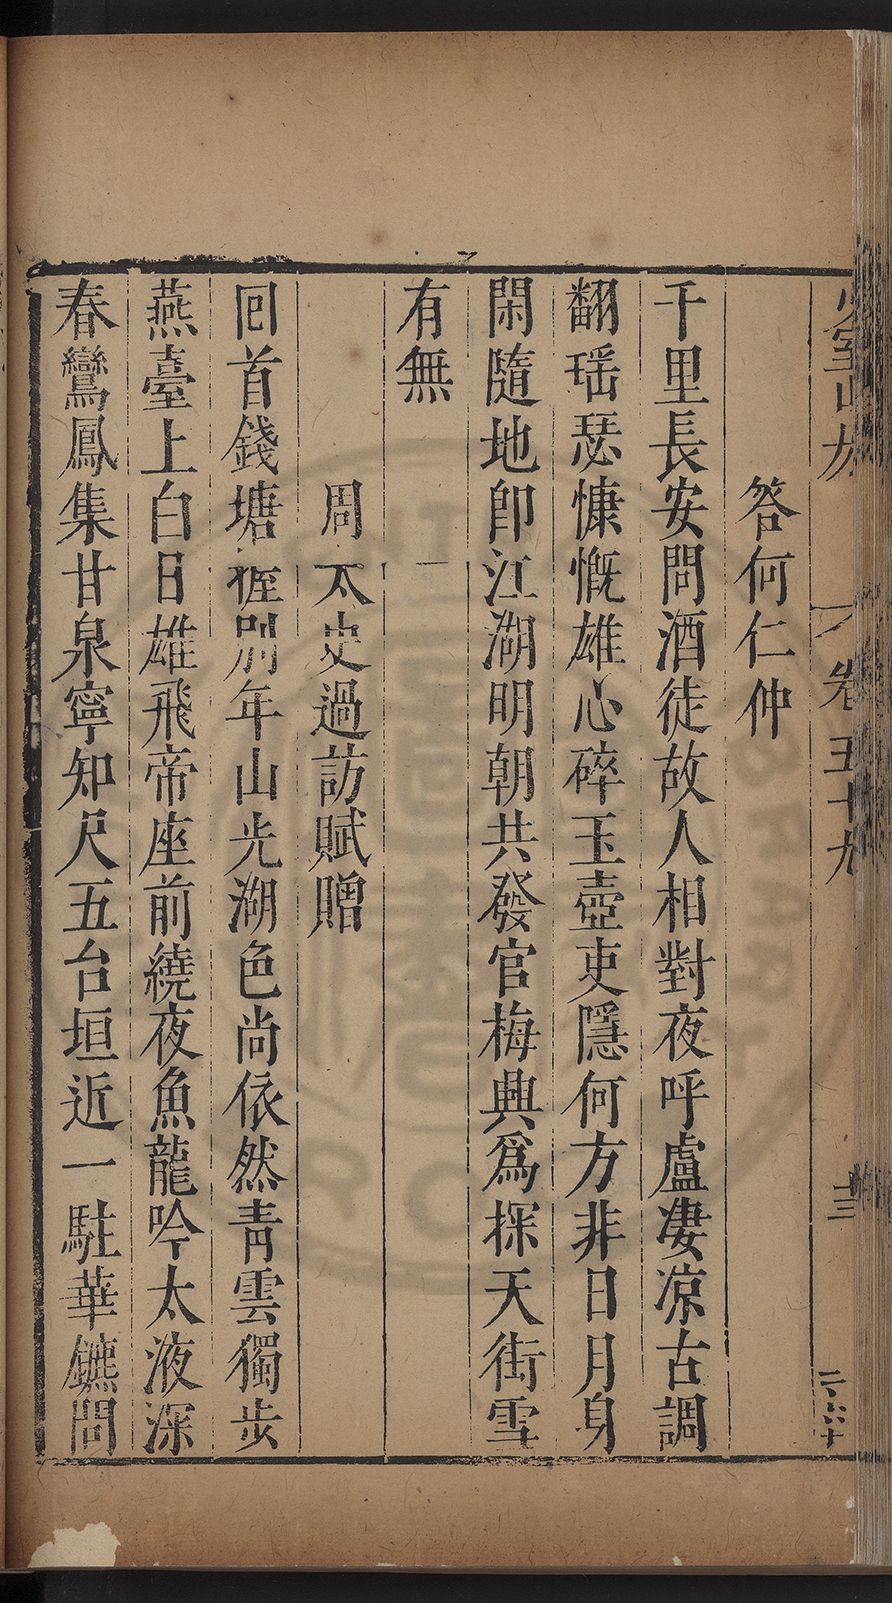 少室山房
卷五十九
十三
二六十
答何仁仲
千里長安問酒徒故人相對夜呼盧淒凉古調
翻瑶瑟慷慨雄心碎玉壺吏隱何方非日月身
閑隨地卽江湖明朝共發官梅興爲探天街雪
有無
周太史過訪賦贈
回首錢塘握別年山光湖色尚依然青雲獨步
燕臺上白日雄飛帝座前繞夜魚龍吟太液深
春鸞鳳集甘泉寧知尺五台垣近一駐華鑣問